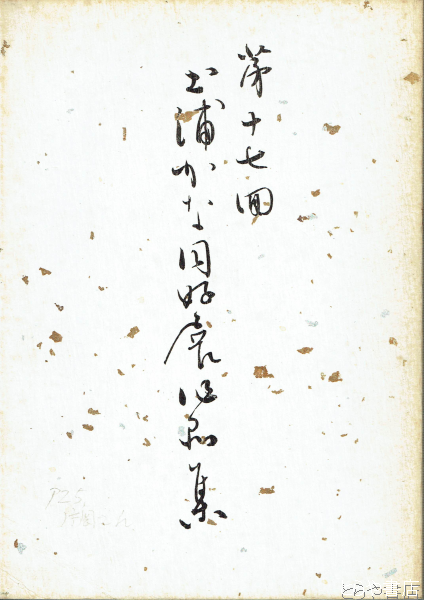 第十七回
土浦かな同好会作品集
P25
とらや書店